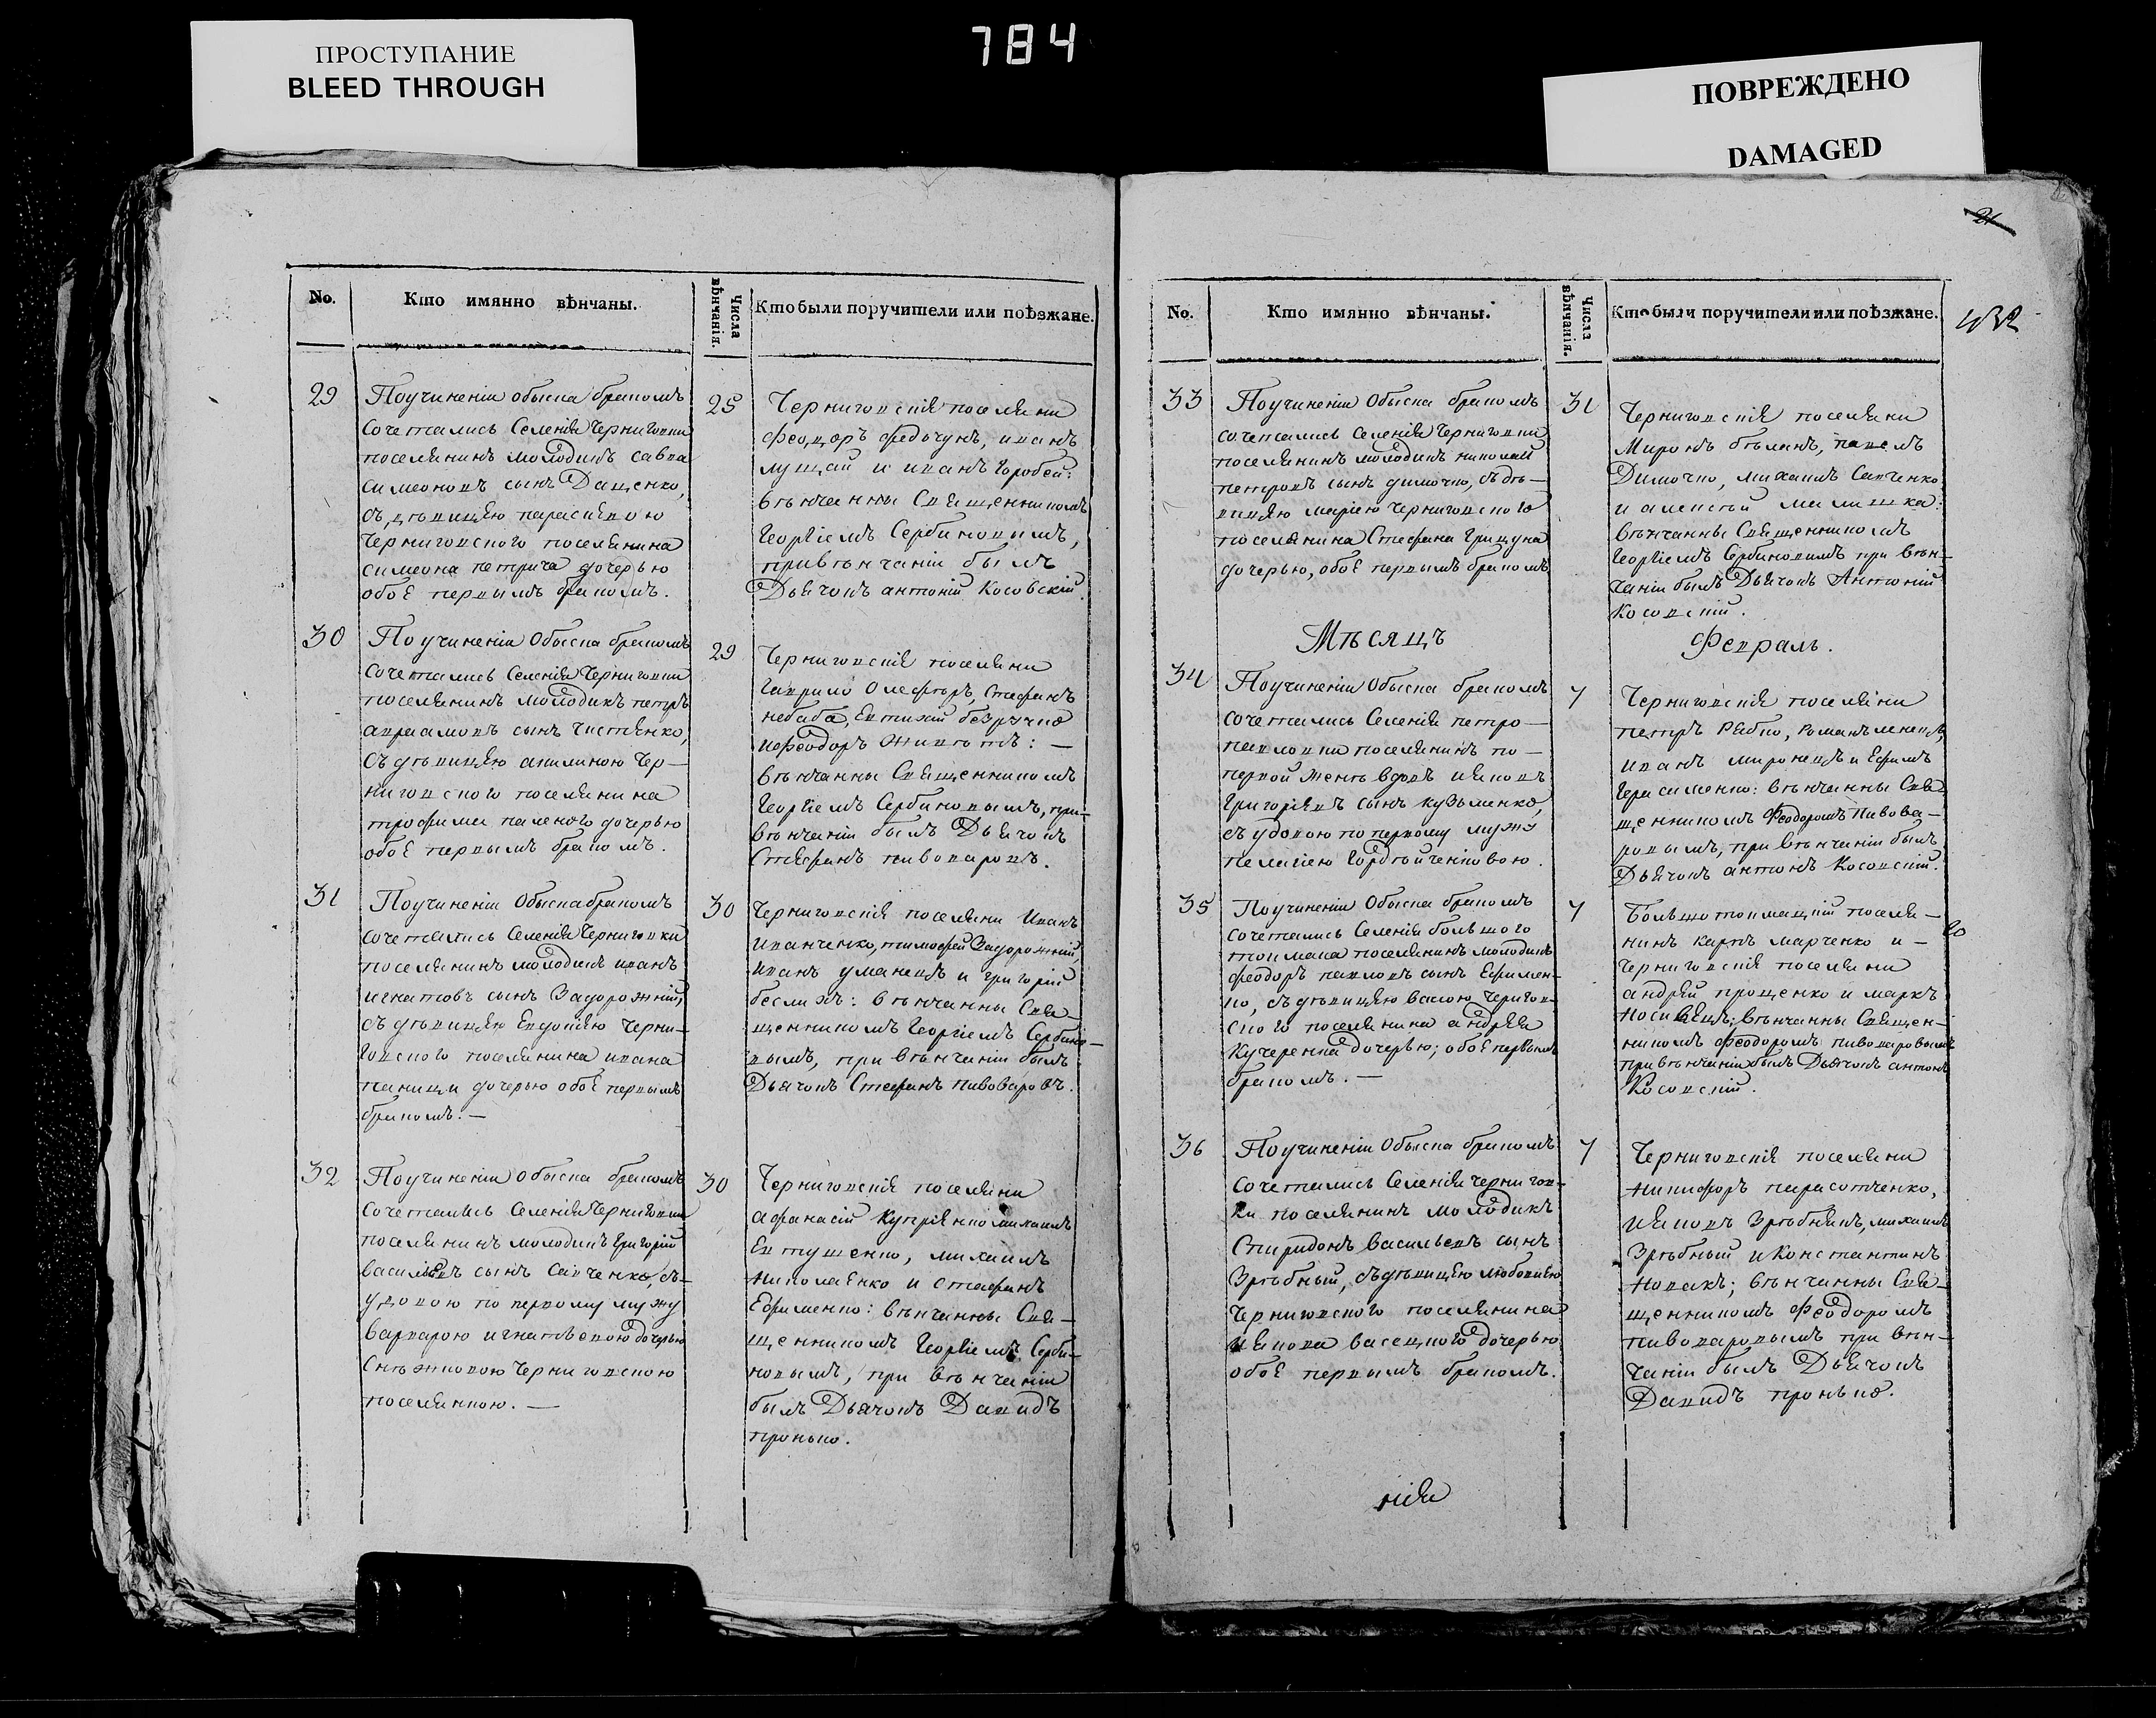 ПРОСТУПАНИЕ
BLEED THROUGH
784
ПОВРЕЖДЕНО
DAMAGED
21
No.
Кто имянно вѣнчаны.
Числа вѣнчанія.
Кто были поручители или поѣзжане.
29
Поучиненіи обыска бракомъ
сочетались Селенія Черниговки
поселянинъ молодикъ савва
симеоновъ сынъ Даценко,
съ дѣвицею параскевою
Черниговского поселянина
симеона петрича дочерью
обоє первымъ бракомъ.
25
Черниговскія поселяни
Феодоръ федочунъ, иванъ
луцай и иванъ Горобей:
вѣнчанны Священникомъ
Георгіемъ Сербиновимъ,
привѣнчаніи былъ
Дьячокъ антоній Косовскій.
30
Поучиненіи Обыска бракомъ
сочетались Селенія Черниговки
поселянинъ молодикъ петръ
авраамовъ сынъ Чистенко,
съ дѣвицею акилиною Чер-
ниговского поселянина
трофима паленого дочерью
обоє первымъ бракомъ.
29
Черниговскія поселяни
Гаврило Олефѣръ, Стефанъ
небаба, Евтихій безручко
иФеодоръ Животъ: —
вѣнчанны Священникомъ
Георгіемъ Сербиновымъ, при-
вѣнчаніи былъ Дьячокъ
Стефанъ пивоваровъ.
31
Поучиненіи Обыска бракомъ
сочетались Селенія Черниговки
поселянинъ молодикъ иванъ
игнатовъ сынъ Задорожній,
съ дѣвицею Евдокією Черни-
говского поселянина ивана
паници дочерью обоє первымъ
бракомъ. —
30
Черниговскія поселяни Иванъ
Иванченко, тимофей Задорожній,
Иванъ уманецъ и григорій
беслюжъ: вѣнчанны Свя-
щенникомъ Георгіемъ Сербино-
вымъ, при вѣнчаніи былъ
Дьячокъ Стефанъ Пивоваровъ.
32
Поучиненіи обыска бракомъ
сочетались Селенія Черниговки
поселянинъ молодикъ Григорій
васильевъ сынъ Савченко, съ-
удовою по первому мужу
варварою игнатьевою дочерью
Снѣжковою Черниговскою
поселянкою. —
30
Черниговскія поселяни
афанасій Купрієнко михаилъ
Евтушенко, михаилъ
николаєнко и стефанъ
Єфименко: вѣнчанны Свя-
щенникомъ Георгіемъ Серби-
новымъ, при вѣнчаніи
былъ Дьячокъ Давидъ
пронько.
No.
Кто имянно вѣнчаны.
Числа вѣнчанія.
Кто были поручители или поѣзжане.
432
33
Поучиненіи Обыска бракомъ
сочетались Селенія Черниговки
поселянинъ молодикъ николай
петровъ сынъ димочко, съ дѣ-
вицею маріею Черниговского
поселянина Стефана Грицуна
дочерью, обоє первымъ бракомъ
31
Черниговскія поселяни
Миронъ бѣликъ, павелъ
Димочко, михаилъ Савченко
и алексій малишка:
вѣнчанны Священникомъ
Георгіемъ Сербиновимъ при вѣн-
чаніи былъ Дьячокъ Антоній
Косовскій.
Мѣсяцъ
Февраль.
34
Поучиненіи Обыска бракомъ
сочетались Селенія петро-
павловки поселянинъ по-
первой женѣ вдовъ иаковъ
григоріевъ сынъ кузьменко,
съ удовою по первому мужу
пелагіею Гордѣйченковою.
7
Черниговскія поселяни
петръ Рябко,
иванъ миронецъ и Ефимъ
Герасименко: вѣнчанны Свя
щенникомъ Феодоромъ Пивова-
ровымъ, при вѣнчаніи былъ
Дьячокъ антонъ Косовскій.
35
Поучиненіи Обыска бракомъ
сочетались Селенія большого
токмака поселянинъ молодикъ
феодоръ павловъ сынъ Ефимен-
ко, съ дѣвицею васою Черигов-
ского поселянина андрея
Кучеренка дочерью; обоє первымъ
бракомъ. —
7
Большотокмацкій поселя-
нинъ карпъ марченко и -
Черниговскія поселяни
андрей проценко и маркъ
Носивецъ; вѣнчанны Священ-
никомъ феодоромъ пивоваровымъ
при вѣнчаніи былъ Дьячокъ антонъ
Косовскій.
36
Поучиненіи Обыска бракомъ
сочетались Селенія Чернигов-
ки поселянинъ молодикъ
Спиридонъ васильевъ сынъ
Зрѣбный, съ дѣвицею любовією
Черниговского поселянина
иакова васецкого дочерью
обоє первымъ бракомъ.
7
Черниговскія поселяни
никифоръ парасотченко,
иаковъ Зрѣбнякъ, михаилъ
Зрѣбный и Константинъ
новакъ; вѣнчанны Свя-
щенникомъ Феодоромъ
пивоваровымъ при вѣн-
чаніи былъ Дьячокъ
Давидъ пронько.